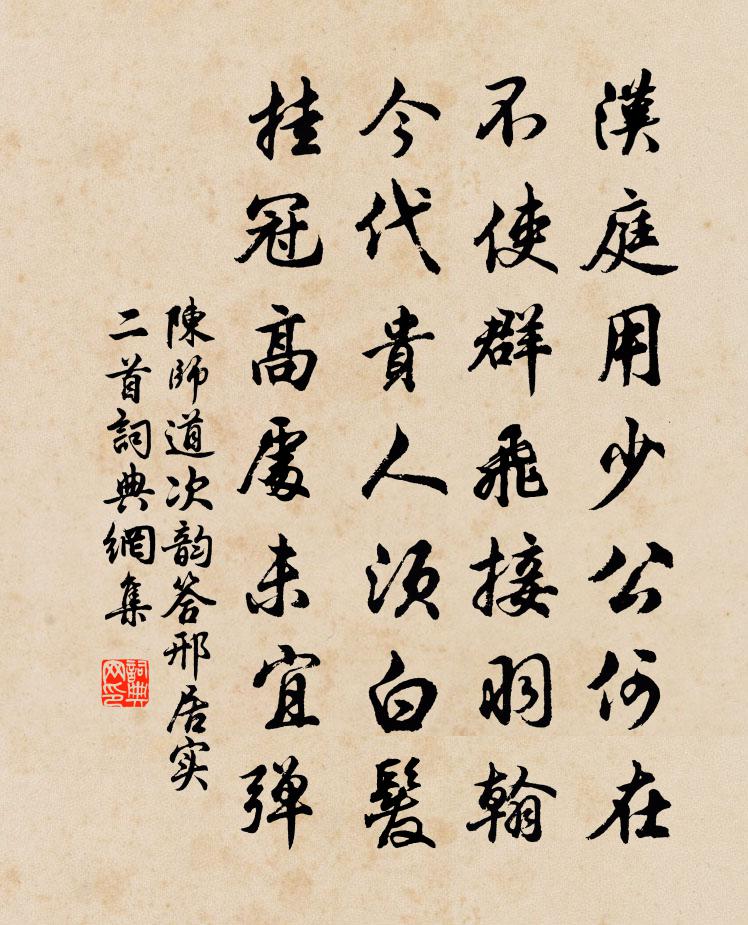 漢庭用少公何在
不使群飛接羽翰
今代貴人須白髮
挂冠高處未宜彈
陳師道次韵答邢居实
二首詞典網集
詞典网印